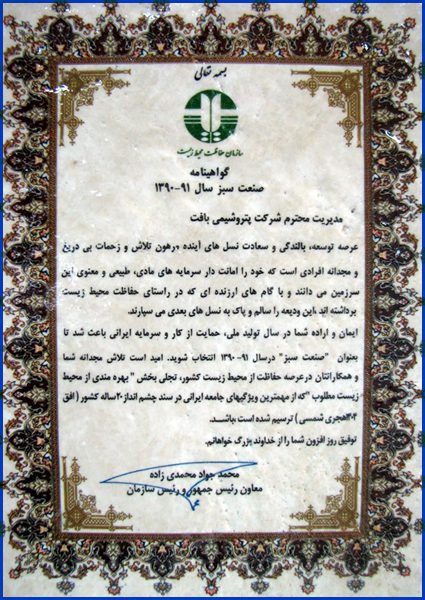 بسمه تعالی
سازمان حفاظت محیط زیست
گواهینامه
صنعت سبز سال ۹۱-۱۳۹۰
مدیریت محترم شرکت پتروشیمی بافت
عرصه توسعه، بالندگی و سعادت نسل های آینده مرهون تلاش و زحمات بی دریغ
و مجدانه افرادی است که خود را امانت دار سرمایه های مادی، طبیعی و معنوی این
سرزمین می دانند و با گام های ارزنده ای که در راستای حفاظت محیط زیست
برداشته اند ،این ودیعه را سالم و پاک به نسل های بعدی می سپارند.
ایمان و اراده شما در سال تولید ملی، حمایت از کار و سرمایه ایرانی باعث شد تا
بعنوان "صنعت سبز" درسال ۹۱-۱۳۹۰ انتخاب شوید. امید است تلاش مجدانه شما
و همکارانتان درعرصه حفاظت از محیط زیست کشور، تجلی بخش "بهره مندی از محیط
زیست مطلوب "که از مهمترین ویژگیهای جامعه ایرانی در سند چشم انداز ۲۰ساله کشور ( افق
۱۴۰۴هجری شمسی ) ترسیم شده است ،باشد.
توفیق روز افزون شما را از خداوند بزرگ خواهانم.
محمد جواد محمدی زاده
معاون رئیس جمهور و رئیس سازمان